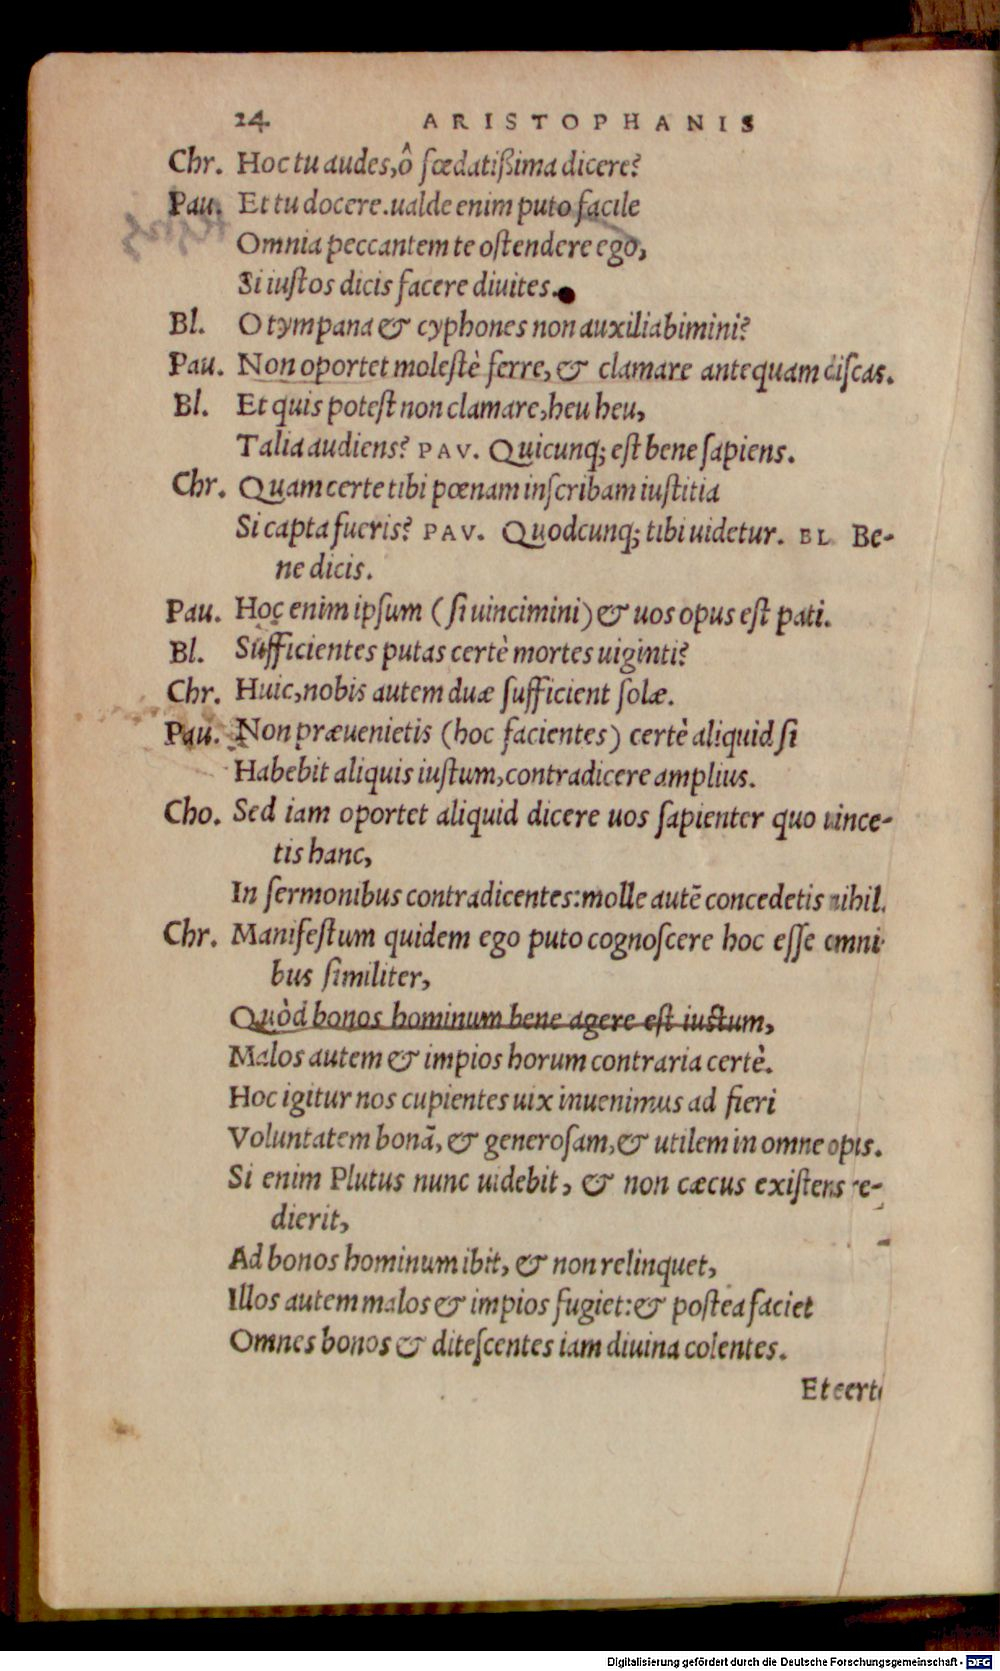 24 ARISTOPHANIS
Chr. Hoc tu audes, ô fœdatißima dicere?
Pau. Et tu docere. ualde enim puto facile
Omnia peccantem te ostendere ego,
Si iustos dicis facere diuites.
Bl. O tympana & cyphones non auxiliabimini?
Pau. Non oportet molestè ferre, & clamare antequam discas.
Bl. Et quis potest non clamare, heu heu,
Talia audiens? PAV. Quicunq; est bene sapiens.
Chr. Quam certe tibi pœnam inscribam iustitia
Si capta fueris? PAV. Quodcunq; tibi uidetur. BL Be-
ne dicis.
Pau. Hoc enim ipsum (si uincimini) & uos opus est pati.
Bl. Sufficientes putas certè mortes uiginti?
Chr. Huic, nobis autem duæ sufficient solæ.
Pau. Non præuenietis (hoc facientes) certè aliquid si
Habebit aliquis iustum, contradicere amplius.
Cho. Sed iam oportet aliquid dicere uos sapienter quo uince-
tis hanc,
In sermonibus contradicentes: molle autē concedetis nihil.
Chr. Manifestum quidem ego puto cognoscere hoc esse omni
bus similiter,
Quòd bonos hominum bene agere est iustum,
Malos autem & impios horum contraria certè.
Hoc igitur nos cupientes uix inuenimus ad fieri
Voluntatem bonā, & generosam, & utilem in omne opus.
Si enim Plutus nunc uidebit, & non cæcus existens re-
dierit,
Ad bonos hominum ibit, & non relinquet,
Illos autem malos & impios fugiet: & postea faciet
Omnes bonos & ditescentes iam diuina colentes.
Et certe
Digitalisierung gefördert durch die Deutsche Forschungsgemeinschaft - DFG